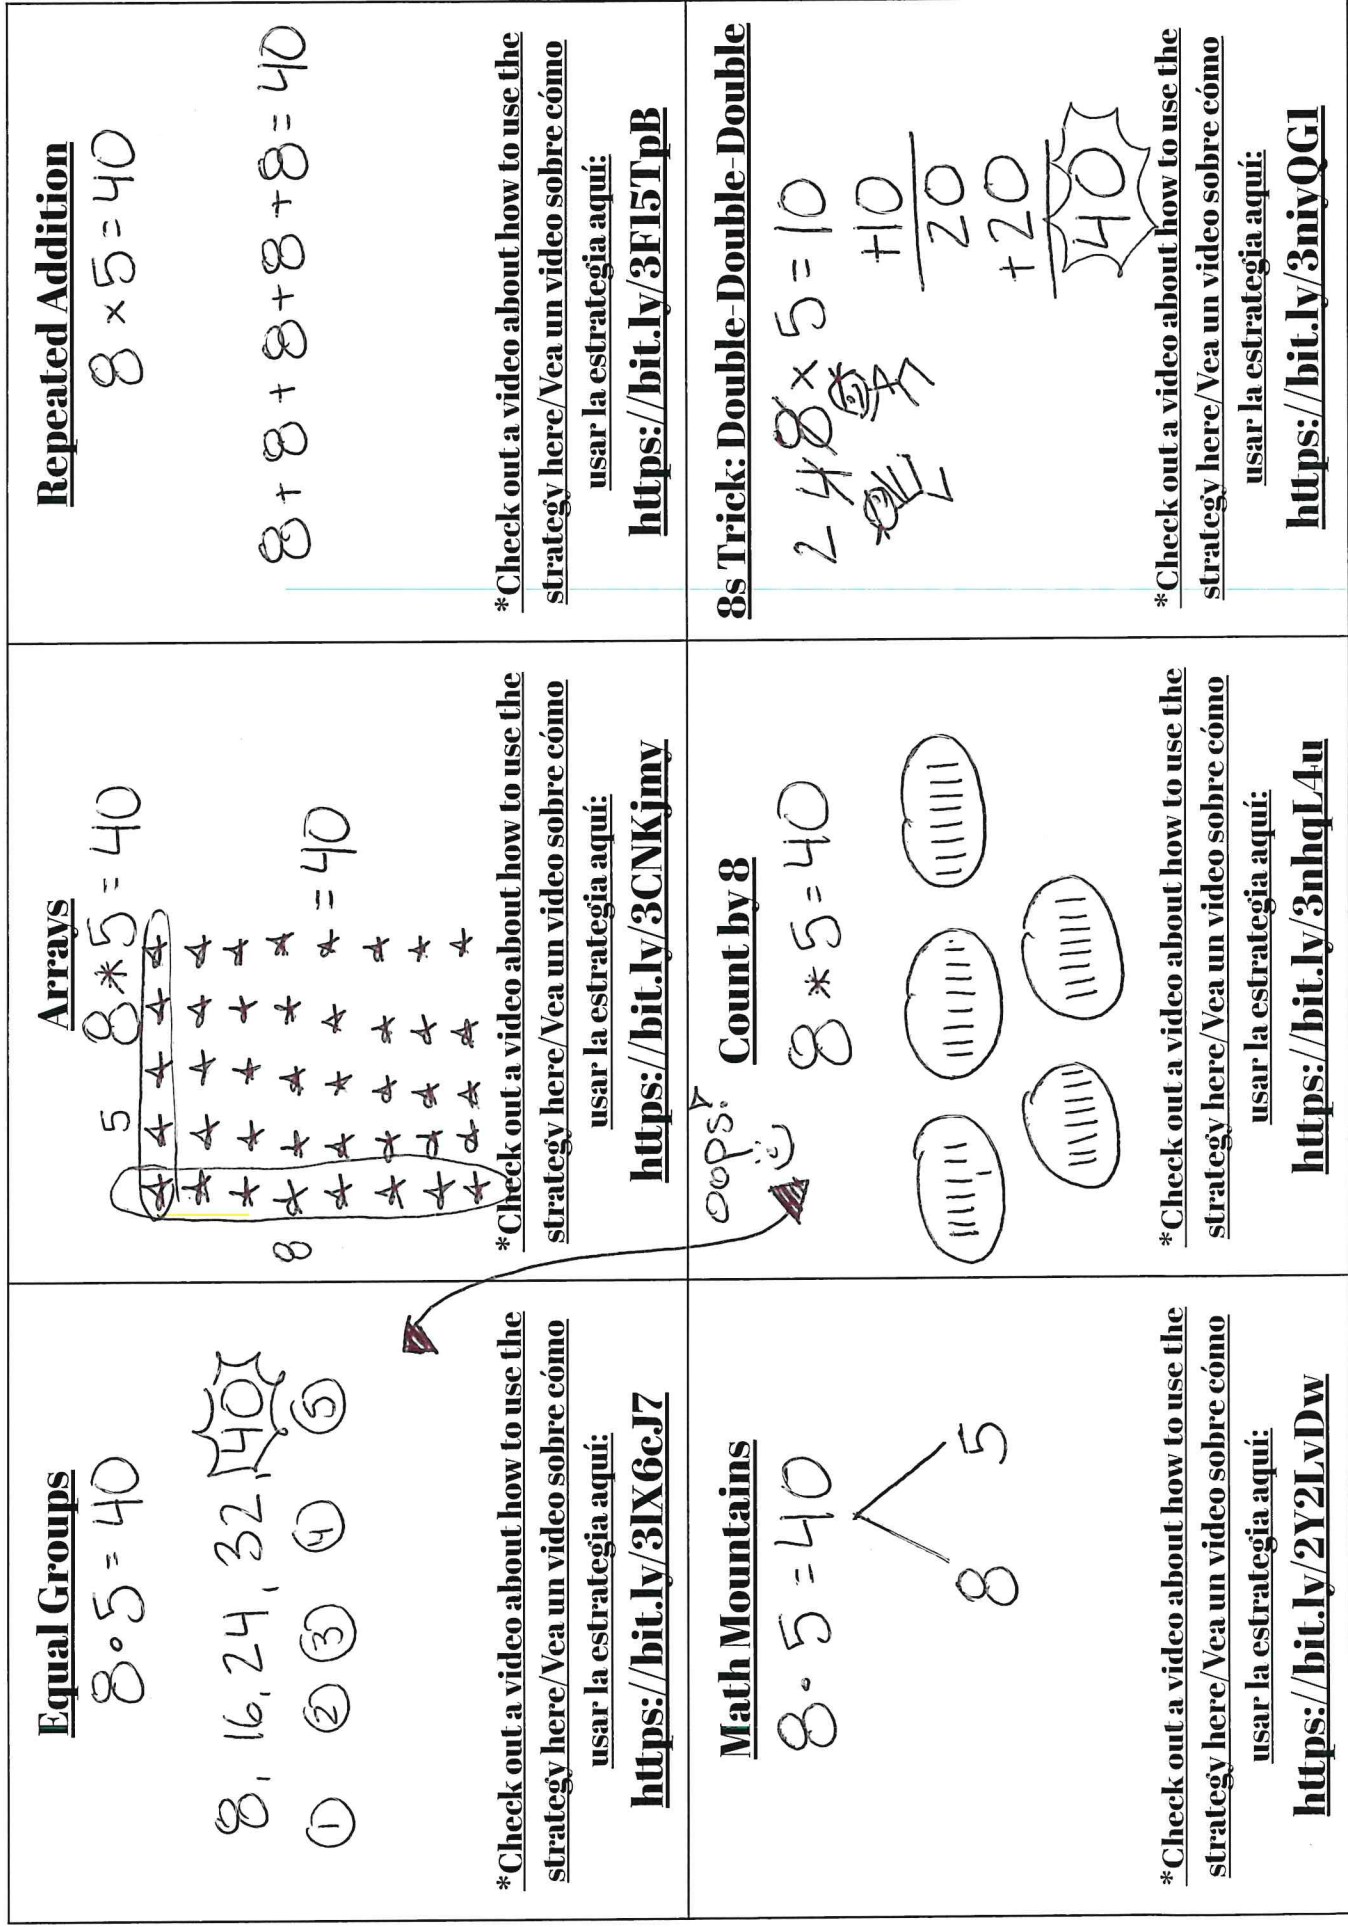 Equal Groups
8·5=40
8, 16, 24, 32, 40
1 2 3 4 5
*Check out a video about how to use the
strategy here/Vea un video sobre cómo
usar la estrategia aquí:
https://bit.ly/3IX6cJ7
Arrays
5 8*5=40
8
=40
*Check out a video about how to use the
strategy here/Vea un video sobre cómo
usar la estrategia aquí:
https://bit.ly/3CNKjmy
Repeated Addition
8×5=40
8+8+8+8+8=40
*Check out a video about how to use the
strategy here/Vea un video sobre cómo
usar la estrategia aquí:
https://bit.ly/3FI5TpB
Math Mountains
8·5=40
8 5
*Check out a video about how to use the
strategy here/Vea un video sobre cómo
usar la estrategia aquí:
https://bit.ly/2Y2LvDw
oops!
Count by 8
8*5=40
*Check out a video about how to use the
strategy here/Vea un video sobre cómo
usar la estrategia aquí:
https://bit.ly/3nhqL4u
8s Trick: Double-Double-Double
2 4 8×5=10
+10
20
+20
40
*Check out a video about how to use the
strategy here/Vea un video sobre cómo
usar la estrategia aquí:
https://bit.ly/3niyQGI